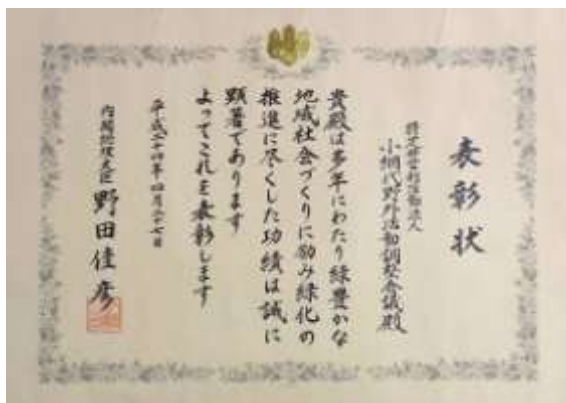 表彰状
特定非営利活動法人
小網代野外活動調整会議殿
貴殿は多年にわたり緑豊かな
地域社会づくりに励み緑化の
推進に尽くした功績は誠に
顕著であります
よってこれを表彰します
平成二十四年四月二十七日
内閣総理大臣 野田佳彦